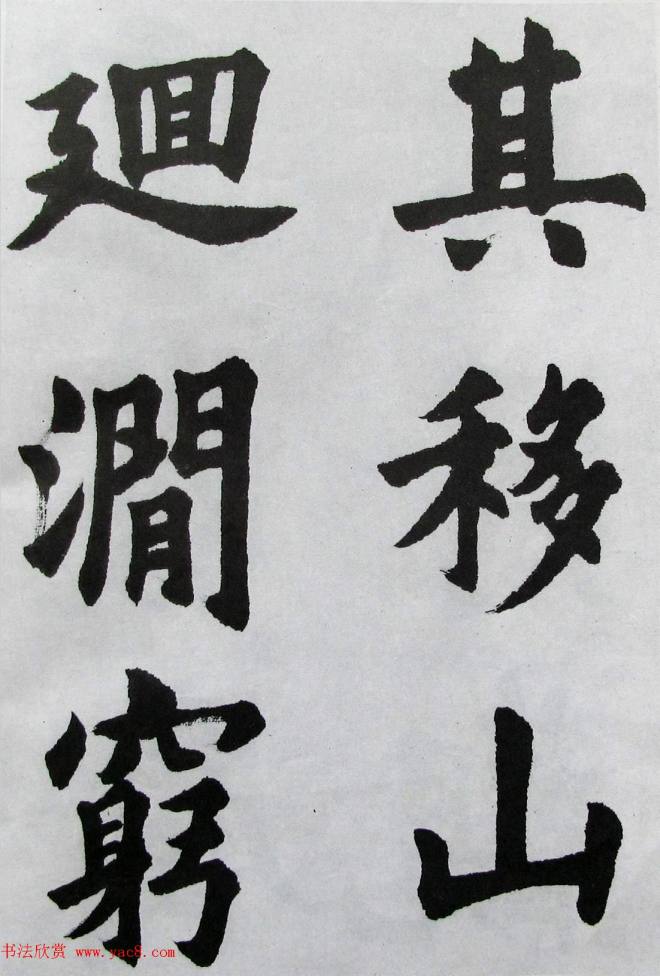 其移山
廻澗窮
书法欣赏 www.yac8.com